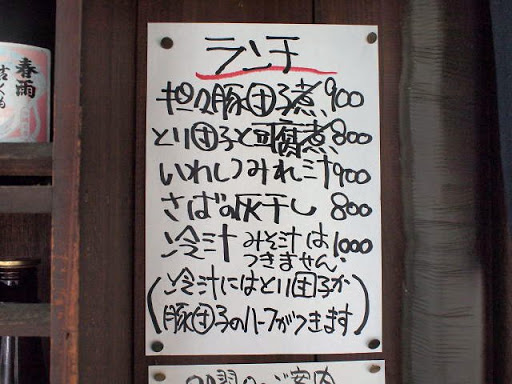 春雨
ランチ
担々豚団子煮 900
とり団子と豆腐煮 800
いわしつみれ汁 900
さばの灰干し 800
冷汁 みそ汁は
つきません 1000
(冷汁にはとり団子か
豚団子のハーフがつきます)
ご案内